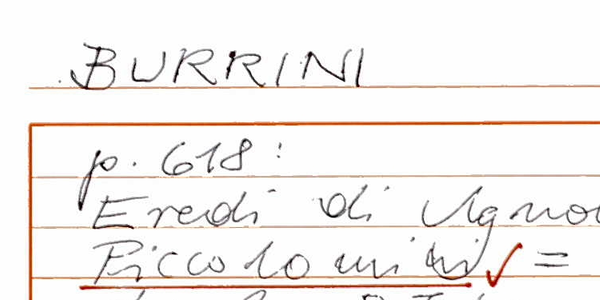 BURRINI
p. 618:
Eredi di
Piccolomini =